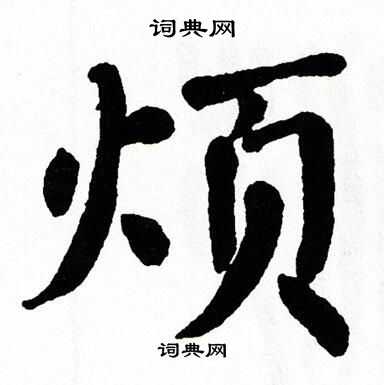 词典网
烦
词典网